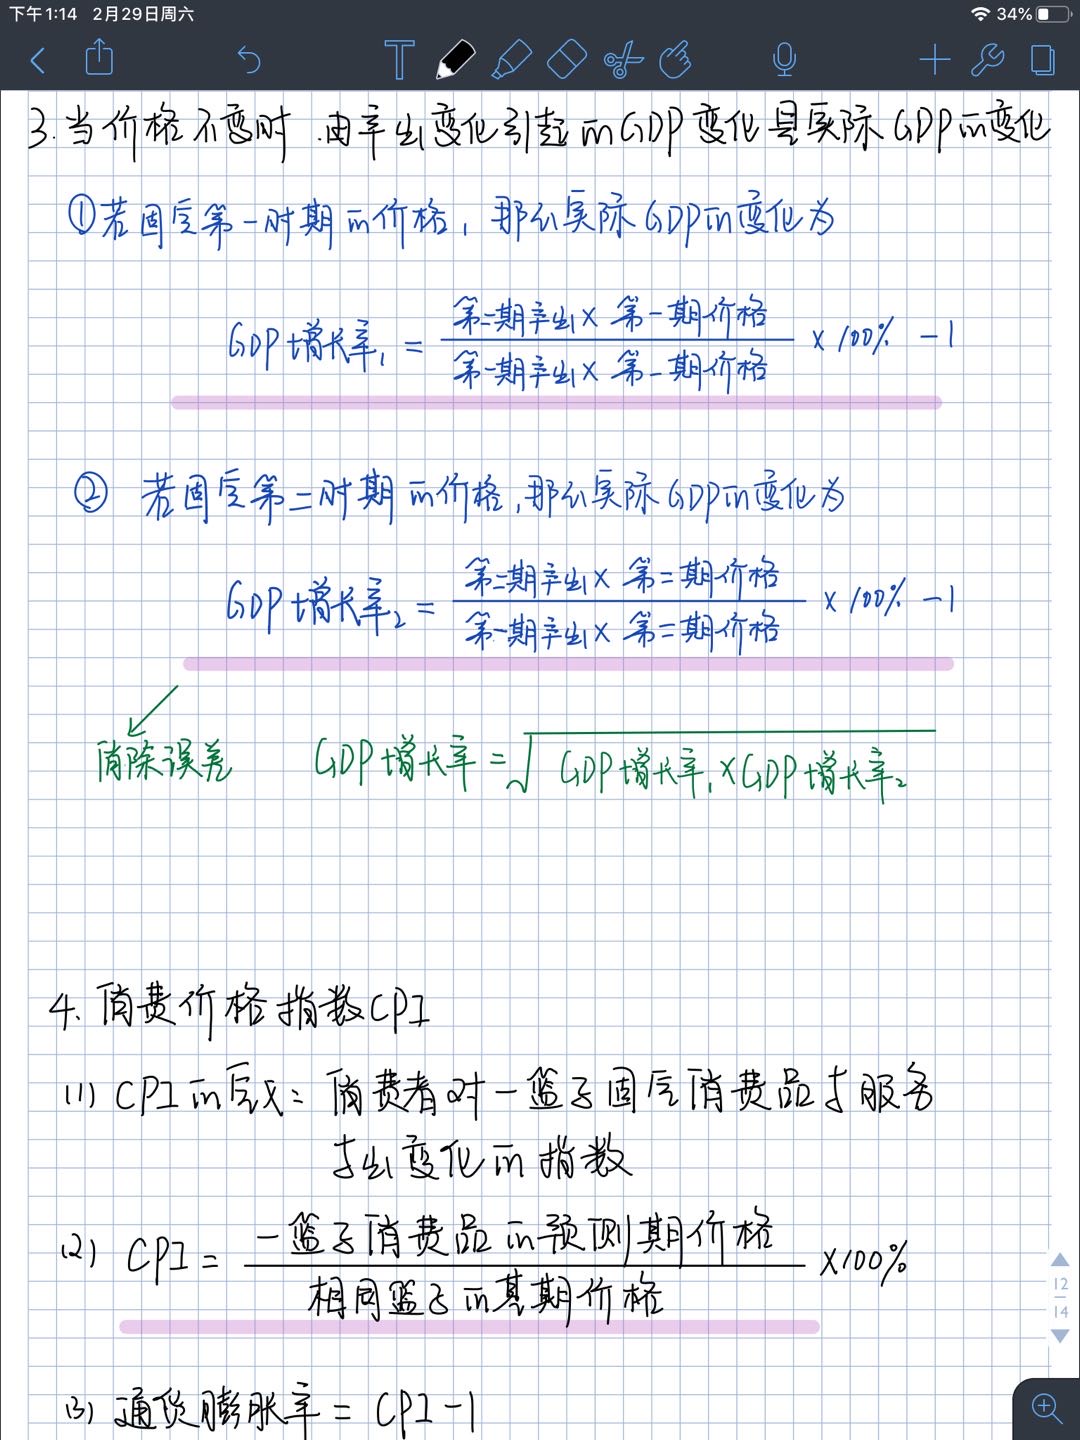 下午1:14 2月29日周六
34%
3.当价格不变时.由产出变化引起的GDP变化是实际GDP的变化
①若固定第一时期的价格,那么实际GDP的变化为
GDP增长率₁ = 第二期产出×第一期价格 / 第一期产出×第一期价格 ×100% -1
② 若固定第二时期的价格,那么实际GDP的变化为
GDP增长率₂ = 第二期产出×第二期价格 / 第一期产出×第二期价格 ×100% -1
消除误差 GDP增长率=√GDP增长率₁×GDP增长率₂
4.消费价格指数CPI
(1) CPI的定义:消费者对一篮子固定消费品与服务
支出变化的指数
(2) CPI = 一篮子消费品的预测期价格 / 相同篮子的基期价格 ×100%
12
14
(3) 通货膨胀率 = CPI-1